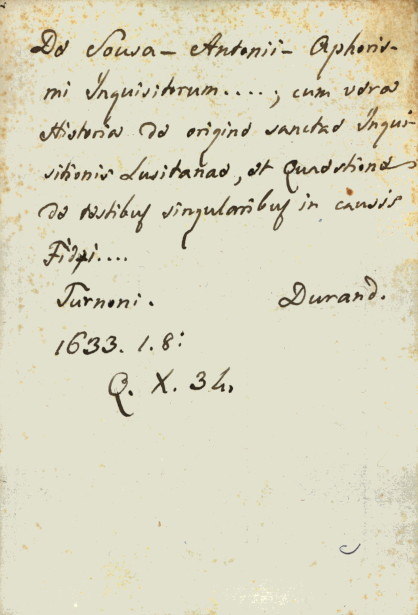 De Sousa - Antonii - Aphoris-
mi Inquisitorum....; cum vera
Historia de origine sanctae Inqui-
sitionis Lusitanae, et Quaestione
de testibus singularibus in causis
Fidei....
Turnoni. Durand.
1633. 1. 8:
Q. X. 34.